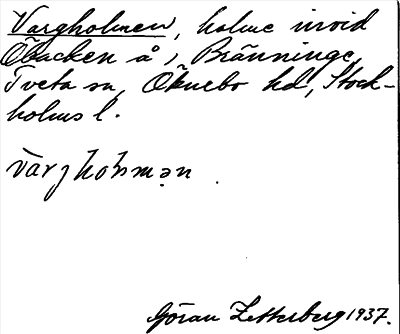 Vargholmen, holme invid
Öbacken å, Bränninge,
Tveta sn, Öknebo hd, Stock-
holms l.
Göran Zetterberg 1937.